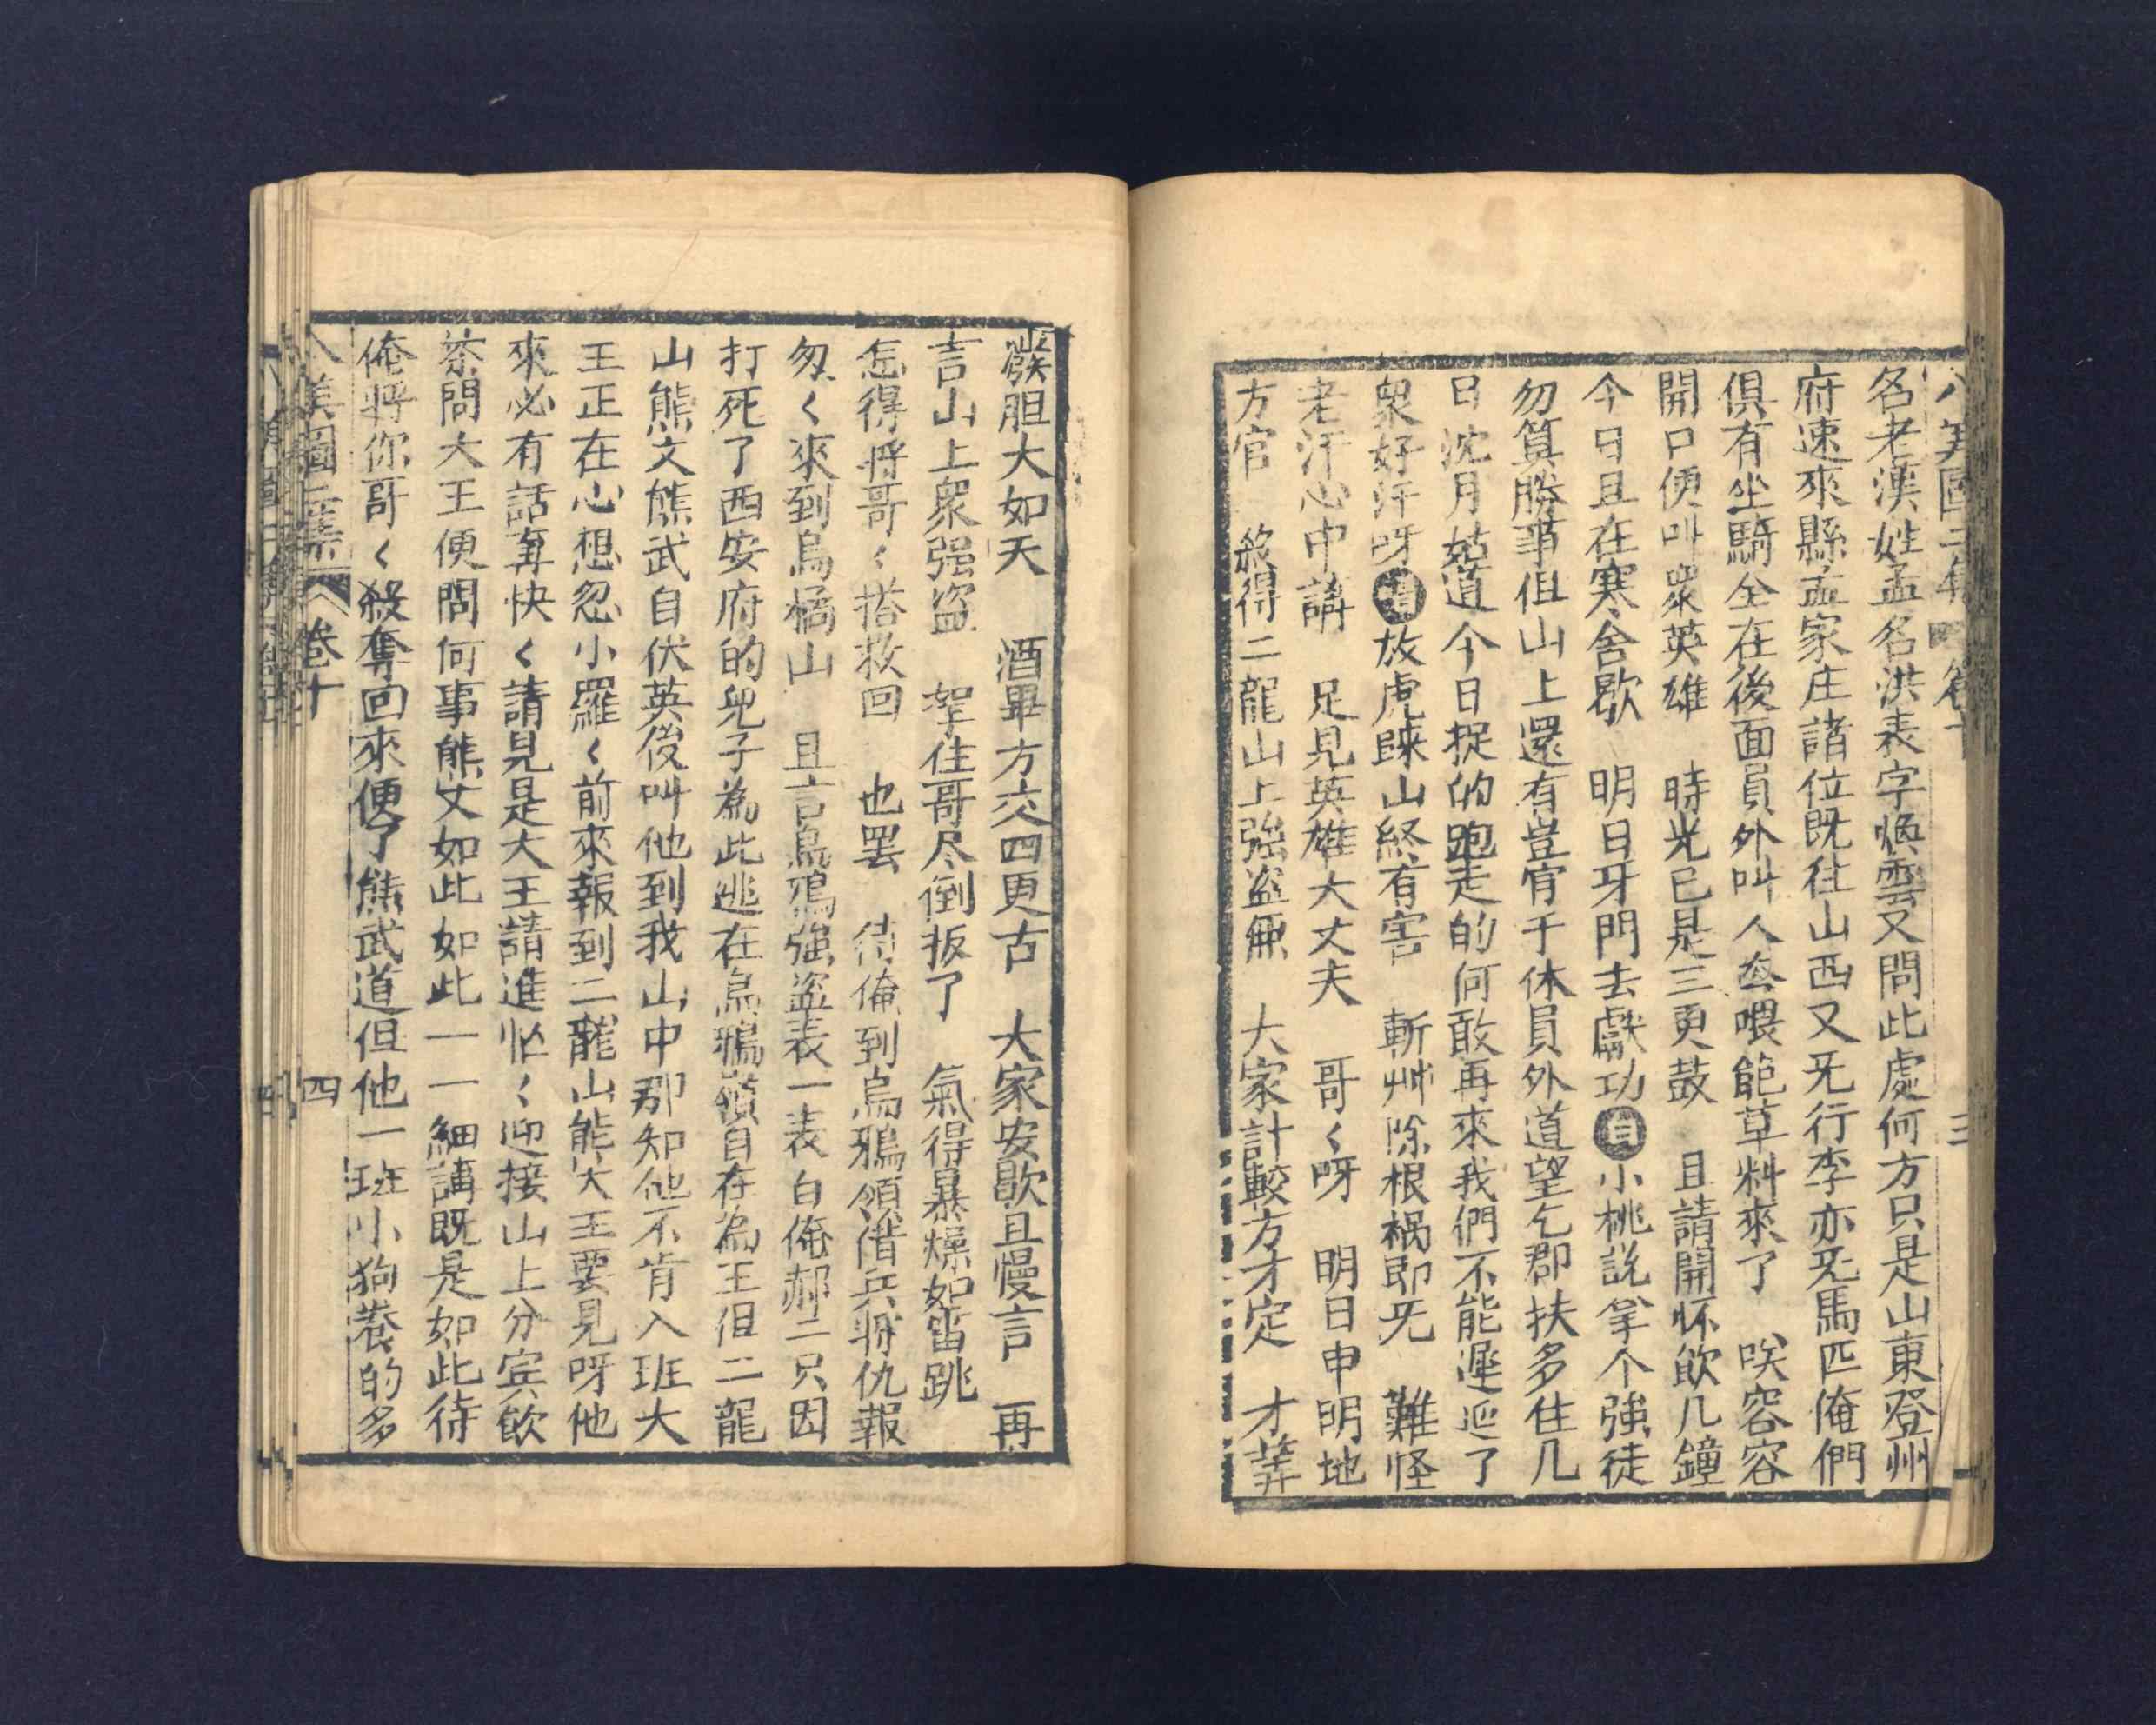 名老漢姓孟名洪表字煥雲又問此處何方只是山東登州
府速來縣孟家庄諸位既往山西又旡行李亦旡馬匹俺們
俱有坐騎全在後面員外叫人去喂飽草料來了　唉容容
開口便叫衆英雄　時光已是三更鼓　且請開怀飲几鐘
今日且在寒舍歇　明日牙門去獻功　小桃説拿个強徒
勿算勝事但山上還有豈肯干休員外道望乞郡扶多住几
日沈月姑道今日捉的跑走的何敢再來我們不能遲延了
衆好汗呀　放虎歸山終有害　斬艸除根禍即旡　難怪
老汗心中講　足見英雄大丈夫　哥〱呀　明日申明地
方官　敘得二龍山上強盗無　大家計較方才定　才算
胆大如天　酒畢方交四更古　大家安歇且慢言　再
言山上衆强盗　拏住哥尽倒扳了　氣得暴燥如雷跳
怎得將哥〱搭救回　也罢　待俺到烏鴉領借兵將仇報
匆〱來到烏楀山　且言烏鴉強盗表一表白俺郝二只因
打死了西安府的兒子為此逃在烏鴉嶺自在為王但二龍
山熊文熊武自伏英後叫他到我山中那知他不肯入班大
王正在心想忽小羅〱前來報到二龍山熊大王要見呀他
來必有話再快〱請見是大王請進忙〱迎接山上分宾飲
茶問大王便問何事熊文如此如此一一細講既是如此待
俺將你哥〱殺奪回來便了熊武道但他一班小狗養的多
八美圖三集　卷十　四